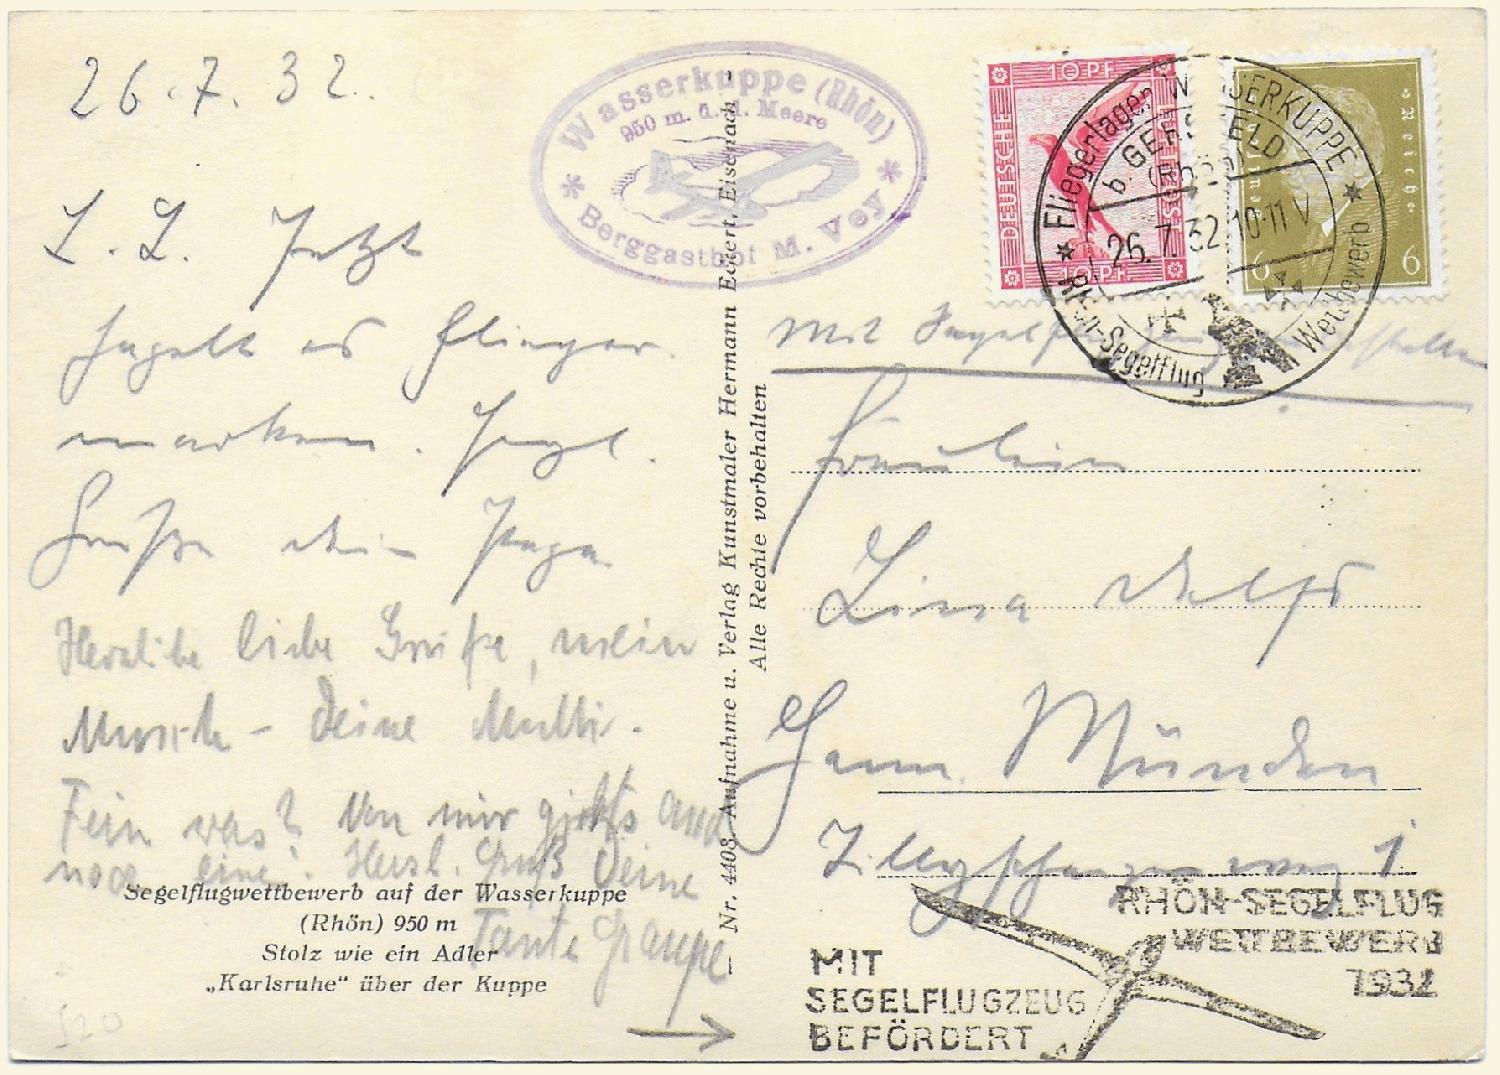 26.7.32.
L. L. Jetzt
segelt es Flieger
marken. Herzl.
Grüße dein Papa
Herzliche liebe Grüße, mein
Musch - Deine Mutti.
Fein was? Von mir gibts auch
noch einen. Herzl. Gruß Deine
Tante Graupe
Segelflugwettbewerb auf der Wasserkuppe
(Rhön) 950 m
Stolz wie ein Adler
„Karlsruhe“ über der Kuppe
520
Wasserkuppe (Rhön)
950 m. ü. d. Meere
* Berggasthof M. Vey *
Nr. 4408. Aufnahme u. Verlag Kunstmaler Hermann Eckert, Eisenach
Alle Rechte vorbehalten
10 PF
DEUTSCHE
10 PF
6 6
* Fliegerlager WASSERKUPPE *
b. GERSFELD
(Rhön)
26.7.32.10-11 V
Rhön-Segelflug Wettbewerb
Mit
Fräulein
Lina
Hann. Münden
1
RHÖN-SEGELFLUG
WETTBEWERB
1932
MIT
SEGELFLUGZEUG
BEFÖRDERT